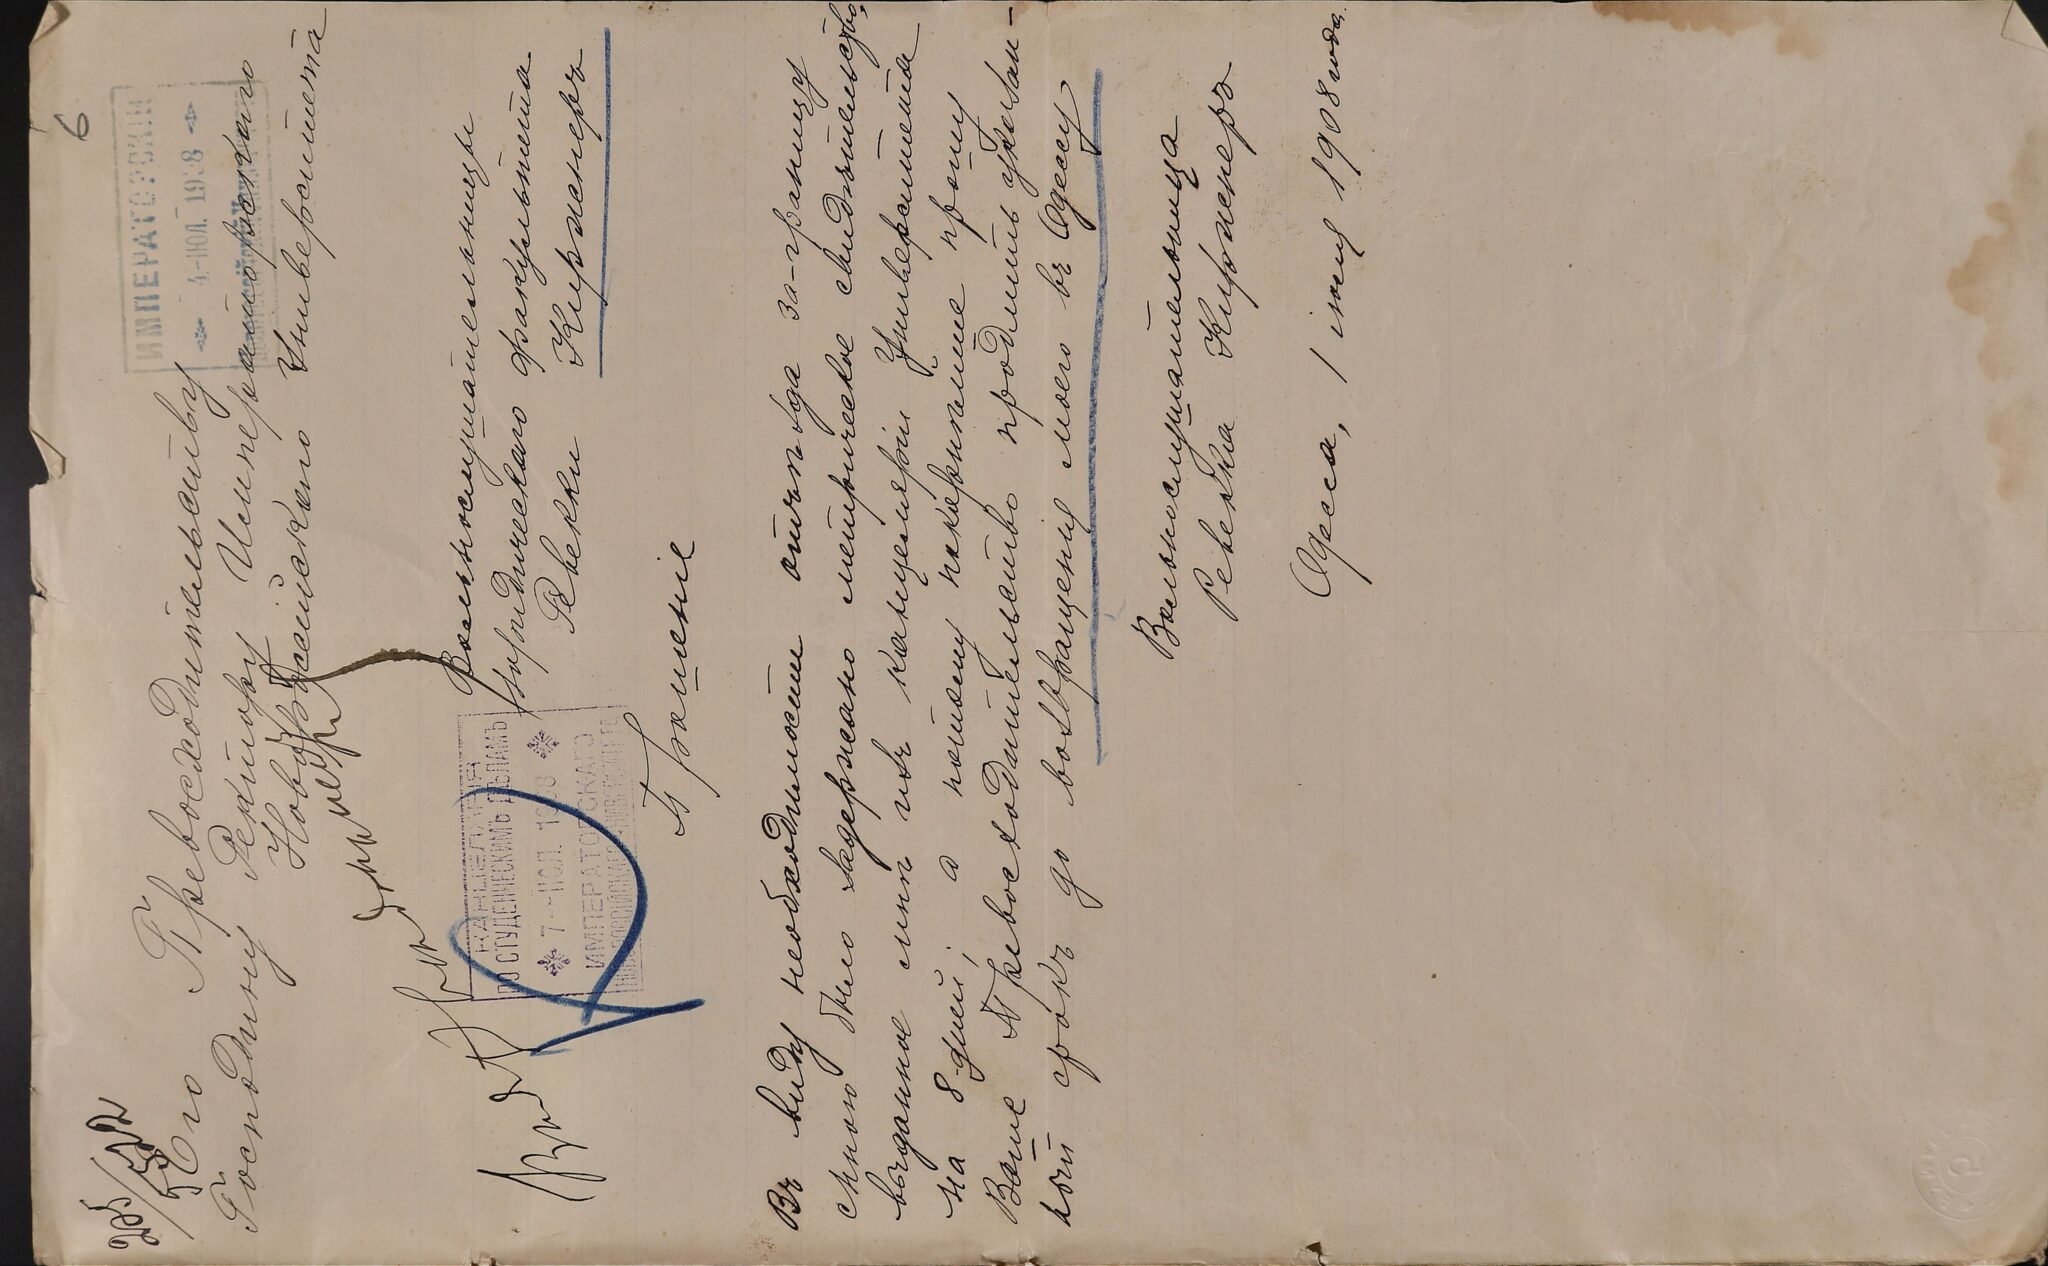 6
ИМПЕРАТОРСКІЙ
4-ІЮЛ. 1908
Его Превосходительству
Господину Ректору Императорскаго
Новороссійскаго Университета
Вольнослушательницы
юридическаго факультета
Ревекки Киржнеръ
КАНЦЕЛЯРІЯ
ПО СТУДЕНЧЕСКИМЪ ДѢЛАМЪ
7-ІЮЛ. 1908
ИМПЕРАТОРСКАГО
НОВОРОССІЙСКАГО УНИВЕРСИТЕТА
Прошеніе
Въ виду необходимости отъѣзда за-границу
мною было задержано метрическое свидѣтельство,
выданное мнѣ изъ канцеляріи Университета
на 8 дней; а потому покорнѣйше прошу
Ваше Превосходительство продлить указан-
ный срокъ до возвращенія моего въ Одессу
Вольнослушательница
Ревекка Киржнеръ
Одесса, 1 іюля 1908 года.